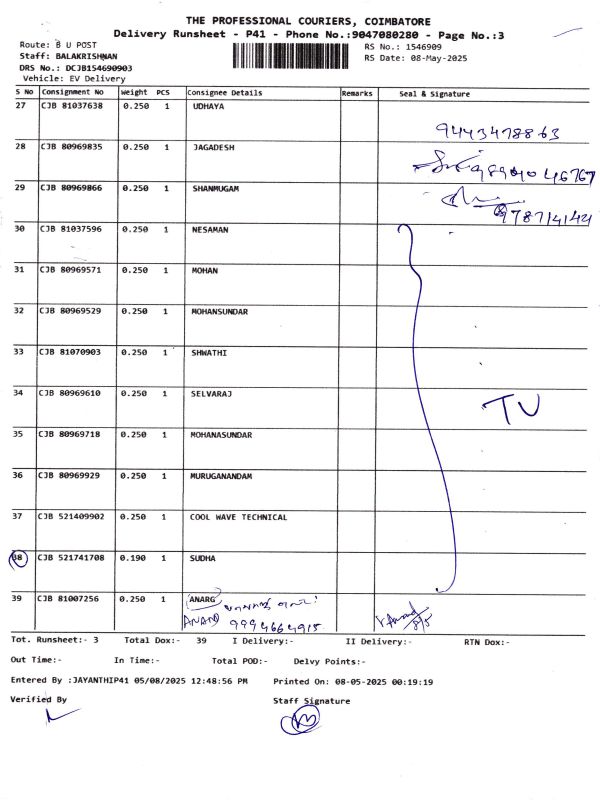 THE PROFESSIONAL COURIERS, COIMBATORE
Delivery Runsheet - P41 - Phone No.:9047080280 - Page No.:3
Route: B U POST
RS No.: 1546909
Staff: BALAKRISHNAN
RS Date: 08-May-2025
DRS No.: DCJB154690903
Vehicle: EV Delivery
S No Consignment No Weight PCS Consignee Details Remarks Seal & Signature
27 CJB 81037638 0.250 1 UDHAYA
9443478863
28 CJB 80969835 0.250 1 JAGADESH
46767
29 CJB 80969866 0.250 1 SHANMUGAM
30 CJB 81037596 0.250 1 NESAMAN
31 CJB 80969571 0.250 1 MOHAN
32 CJB 80969529 0.250 1 MOHANSUNDAR
33 CJB 81070903 0.250 1 SHWATHI
34 CJB 80969610 0.250 1 SELVARAJ
TU
35 CJB 80969718 0.250 1 MOHANASUNDAR
36 CJB 80969929 0.250 1 MURUGANANDAM
37 CJB 521409902 0.250 1 COOL WAVE TECHNICAL
38 CJB 521741708 0.190 1 SUDHA
39 CJB 81007256 0.250 1 ANARG
ANAND 9994664915 8/5
Tot. Runsheet:- 3 Total Dox:- 39 I Delivery:- II Delivery:- RTN Dox:-
Out Time:- In Time:- Total POD:- Delvy Points:-
Entered By :JAYANTHIP41 05/08/2025 12:48:56 PM Printed On: 08-05-2025 00:19:19
Verified By Staff Signature